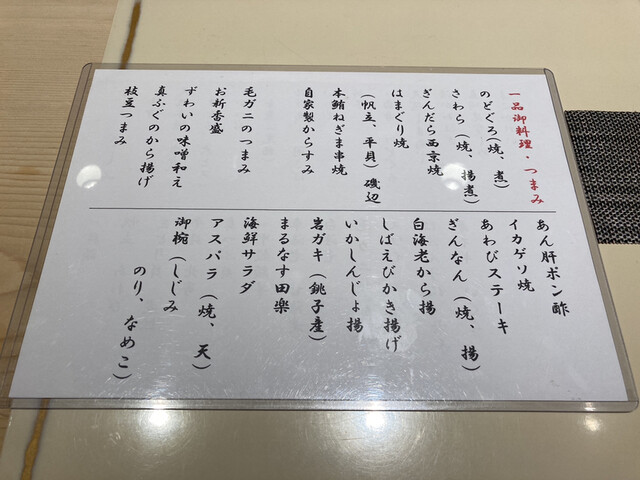 一品御料理・つまみ
のどぐろ(焼、煮)
さわら(焼、揚煮)
ぎんだら西京焼
はまぐり焼
(帆立、平貝)磯辺
本鮪ねぎま串焼
自家製からすみ
毛ガニのつまみ
お新香盛
ずわいの味噌和え
真ふぐのから揚げ
枝豆つまみ
あん肝ポン酢
イカゲソ焼
あわびステーキ
ぎんなん(焼、揚)
白海老から揚
しばえびかき揚げ
いかしんじょ揚
岩ガキ(銚子産)
まるなす田楽
海鮮サラダ
アスパラ(焼、天)
御椀(しじみ
のり、なめこ)